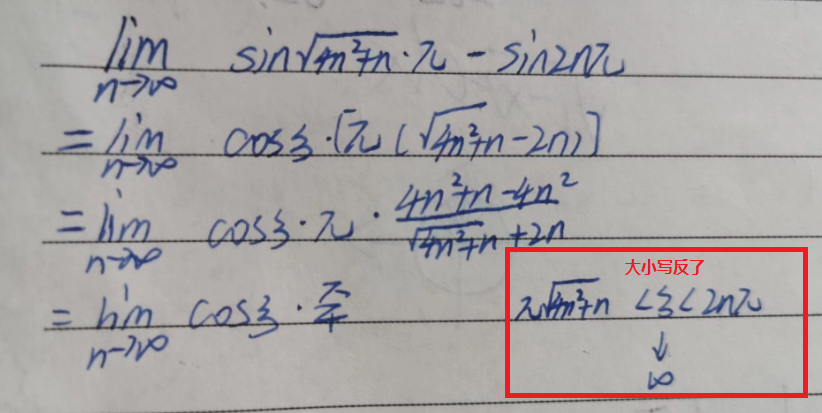 lim n→∞ sin√(4n²+n)·π - sin2nπ
= lim n→∞ cosξ·[π(√(4n²+n)-2n)]
= lim n→∞ cosξ·π·(4n²+n-4n²)/(√(4n²+n)+2n)
= lim n→∞ cosξ·π/4
大小写反了
π√(4n²+n) <ξ<2nπ
↓
∞